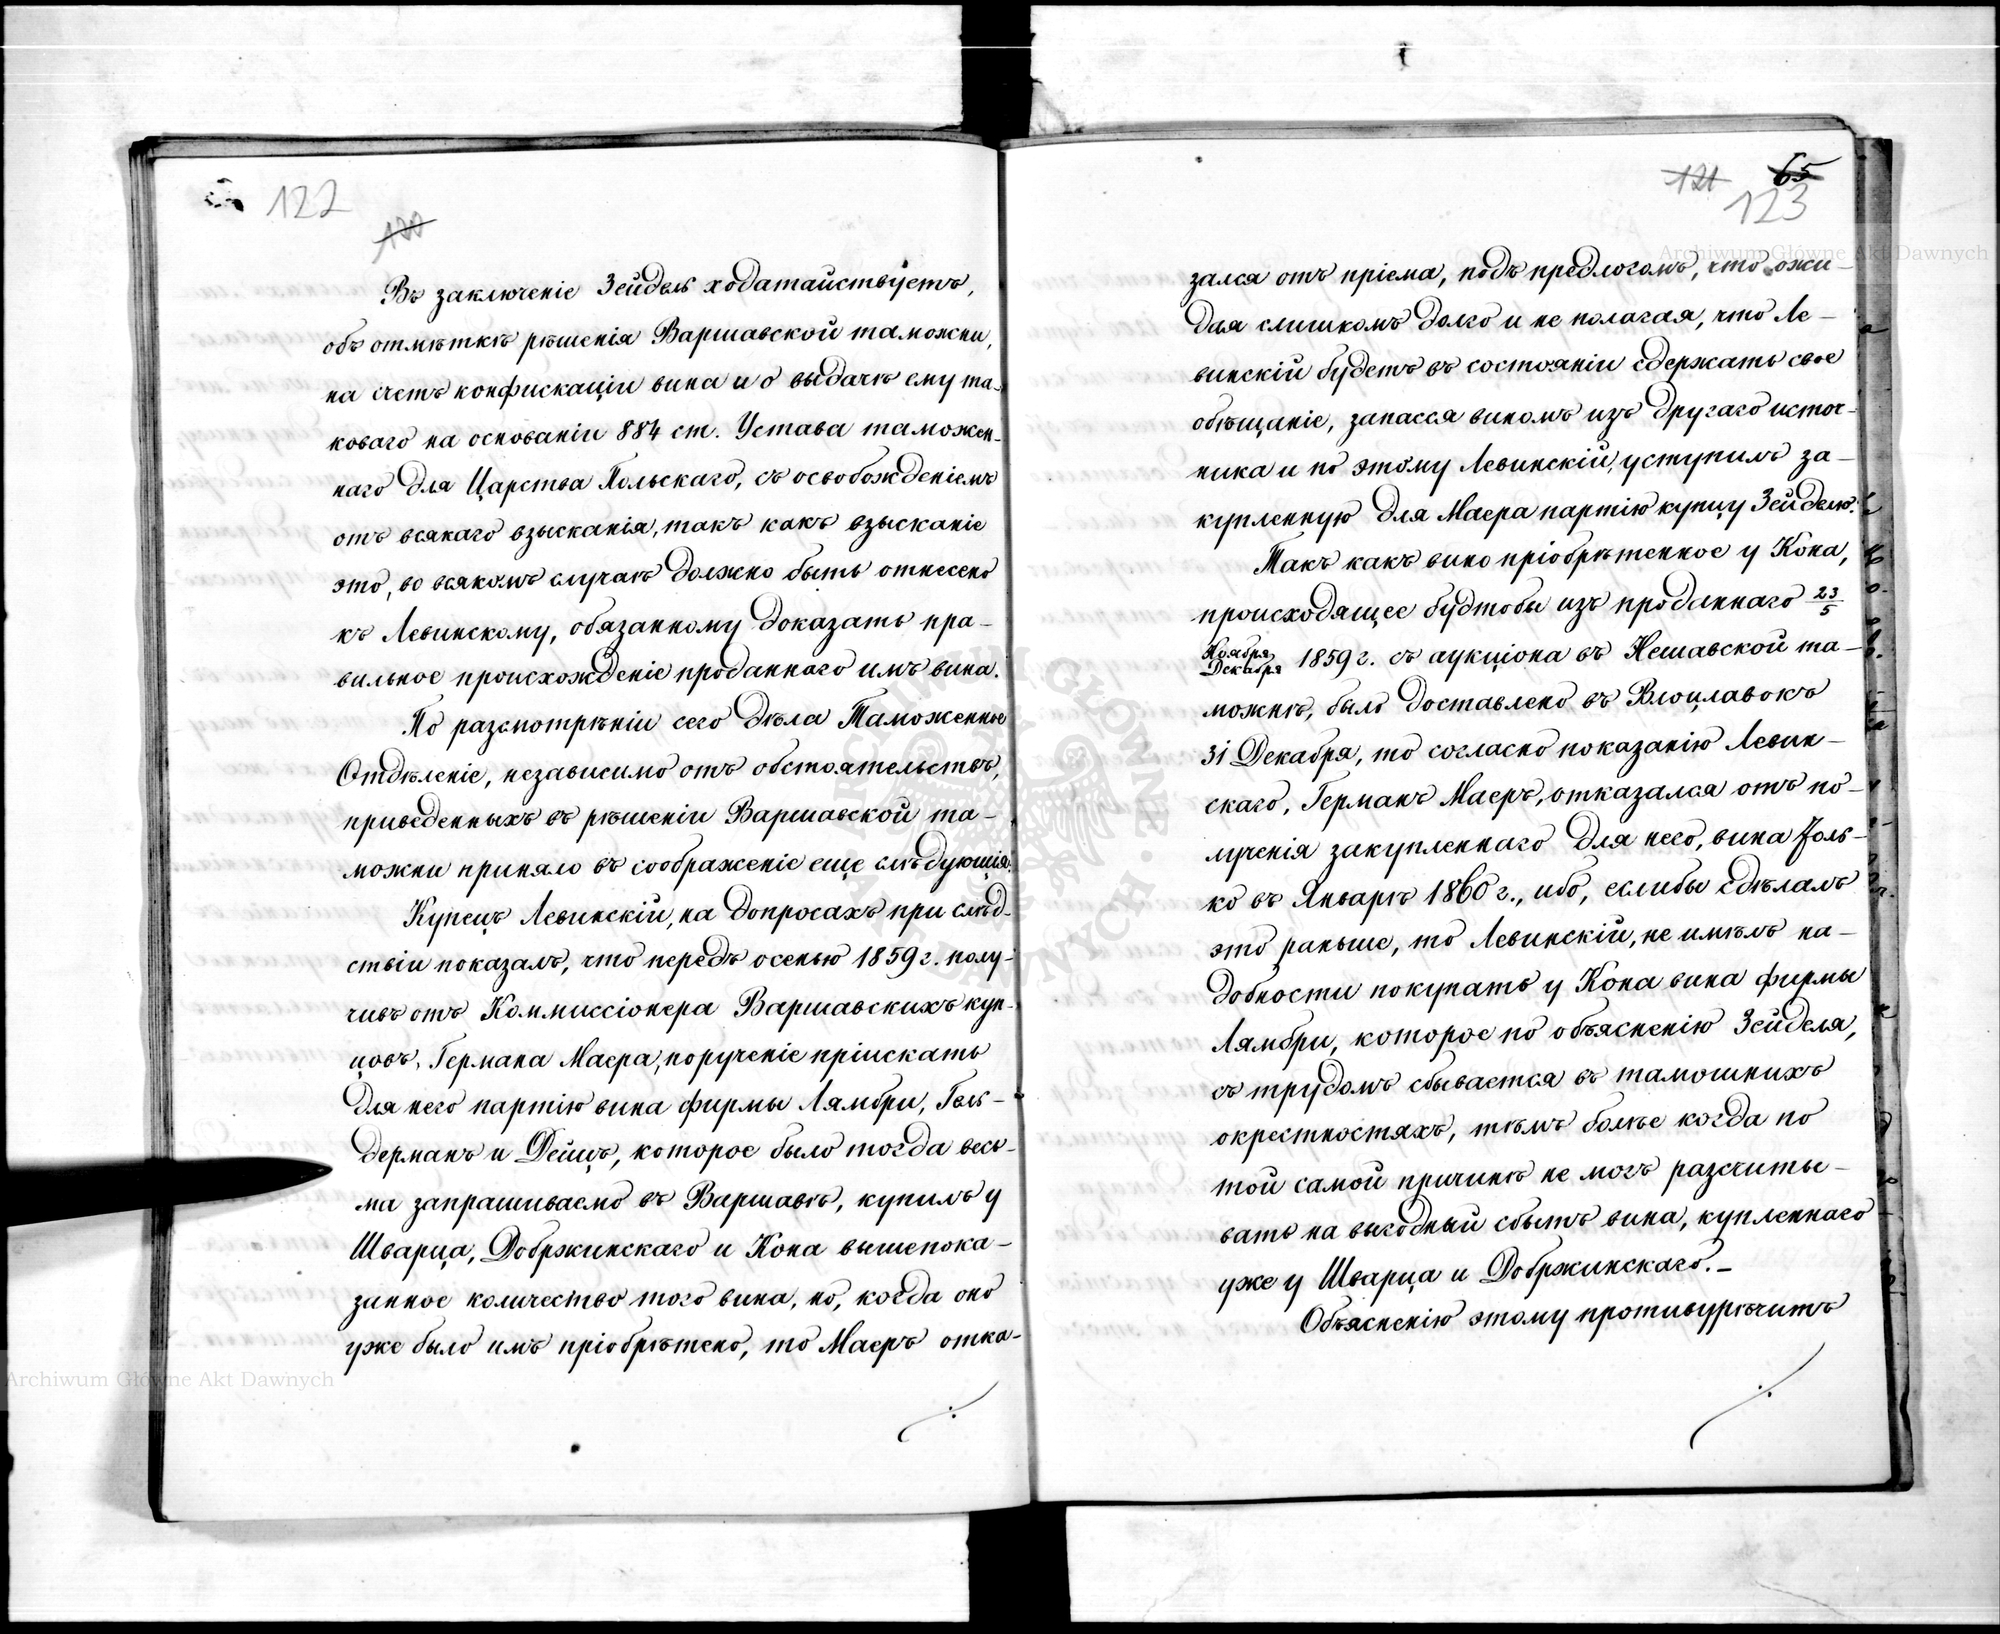 122
120
Въ заключеніе Зейдель ходатайствуетъ,
объ отмѣткѣ рѣшенія Варшавской таможни,
на счетъ конфискаціи вина и о выдачѣ ему та-
коваго на основаніи 884 ст. Устава таможен-
наго для Царства Польскаго, съ освобожденіемъ
отъ всякаго взысканія, такъ какъ взысканіе
это, во всякомъ случаѣ должно быть отнесено
къ Левинскому, обязанному доказать пра-
вильное происхожденіе проданнаго имъ вина.
По разсмотрѣніи сего дѣла Таможенное
Отдѣленіе, независимо отъ обстоятельствъ,
приведенныхъ въ рѣшеніи Варшавской та-
можни приняло въ соображеніе еще слѣдующія:
Купецъ Левинскій, на допросахъ при слѣд-
ствіи показалъ, что передъ осенью 1859 г. полу-
чивъ отъ Коммиссіонера Варшавскихъ куп-
цовъ, Германа Маера, порученіе пріискать
для него партію вина фирмы Лямбри, Гель-
дерманъ и Дейцъ, которое было тогда весь-
ма запрашиваемо въ Варшавѣ, купилъ у
Шварца, Добржинскаго и Кона вышепока-
занное количество того вина, но, когда оно
уже было имъ пріобрѣтено, то Маеръ отка-
121 65
123
зался отъ пріема, подъ предлогомъ, что ожи-
дая слишкомъ долго и не полагая, что Ле-
винскій будетъ въ состояніи сдержать свое
обѣщаніе, запасся виномъ изъ другаго источ-
ника и по этому Левинскій, уступилъ за-
купленную для Маера партію купцу Зейделю.
Такъ какъ вино пріобрѣтенное у Кона,
происходящее будтобы изъ проданнаго 23/5
Ноября/Декабря 1859 г. съ аукціона въ Нешавской та-
можнѣ, было доставлено въ Влоцлавокъ
31 Декабря, то согласно показанію Левин-
скаго, Германъ Маеръ, отказался отъ по-
лученія закупленнаго для него, вина толь-
ко въ Январѣ 1860 г., ибо, еслибы сдѣлалъ
это раньше, то Левинскій, не имѣлъ на-
добности покупать у Кона вина фирмы
Лямбри, которое по объясненію Зейделя,
съ трудомъ сбывается въ тамошнихъ
окрестностяхъ, тѣмъ болѣе когда по
той самой причинѣ не могъ разсчиты-
вать на выгодный сбытъ вина, купленнаго
уже у Шварца и Добржинскаго. -
Объясненію этому противурѣчитъ
Archiwum Główne Akt Dawnych
Archiwum Główne Akt Dawnych